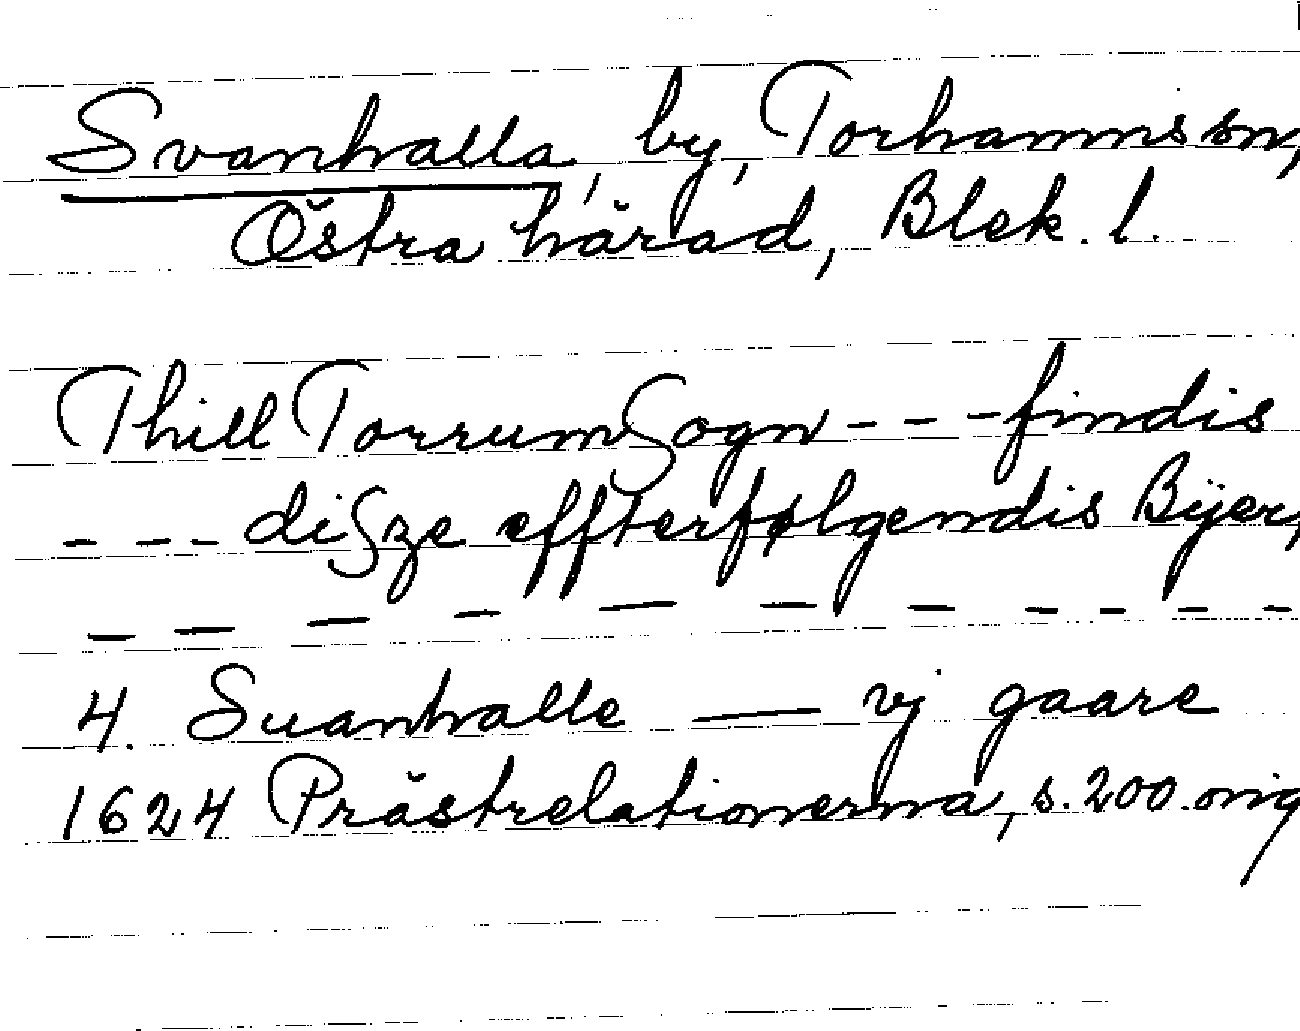 Svanhalla, by, Torhamns sn,
Östra härad, Blek. l.
Thill Torrum Sogn - - - findis
- - - diSze effterfølgendis Bÿer,
— — — — — — — - - - -
4. Suanhalle — vj gaare
1624 Prästrelationerna, s. 200. orig